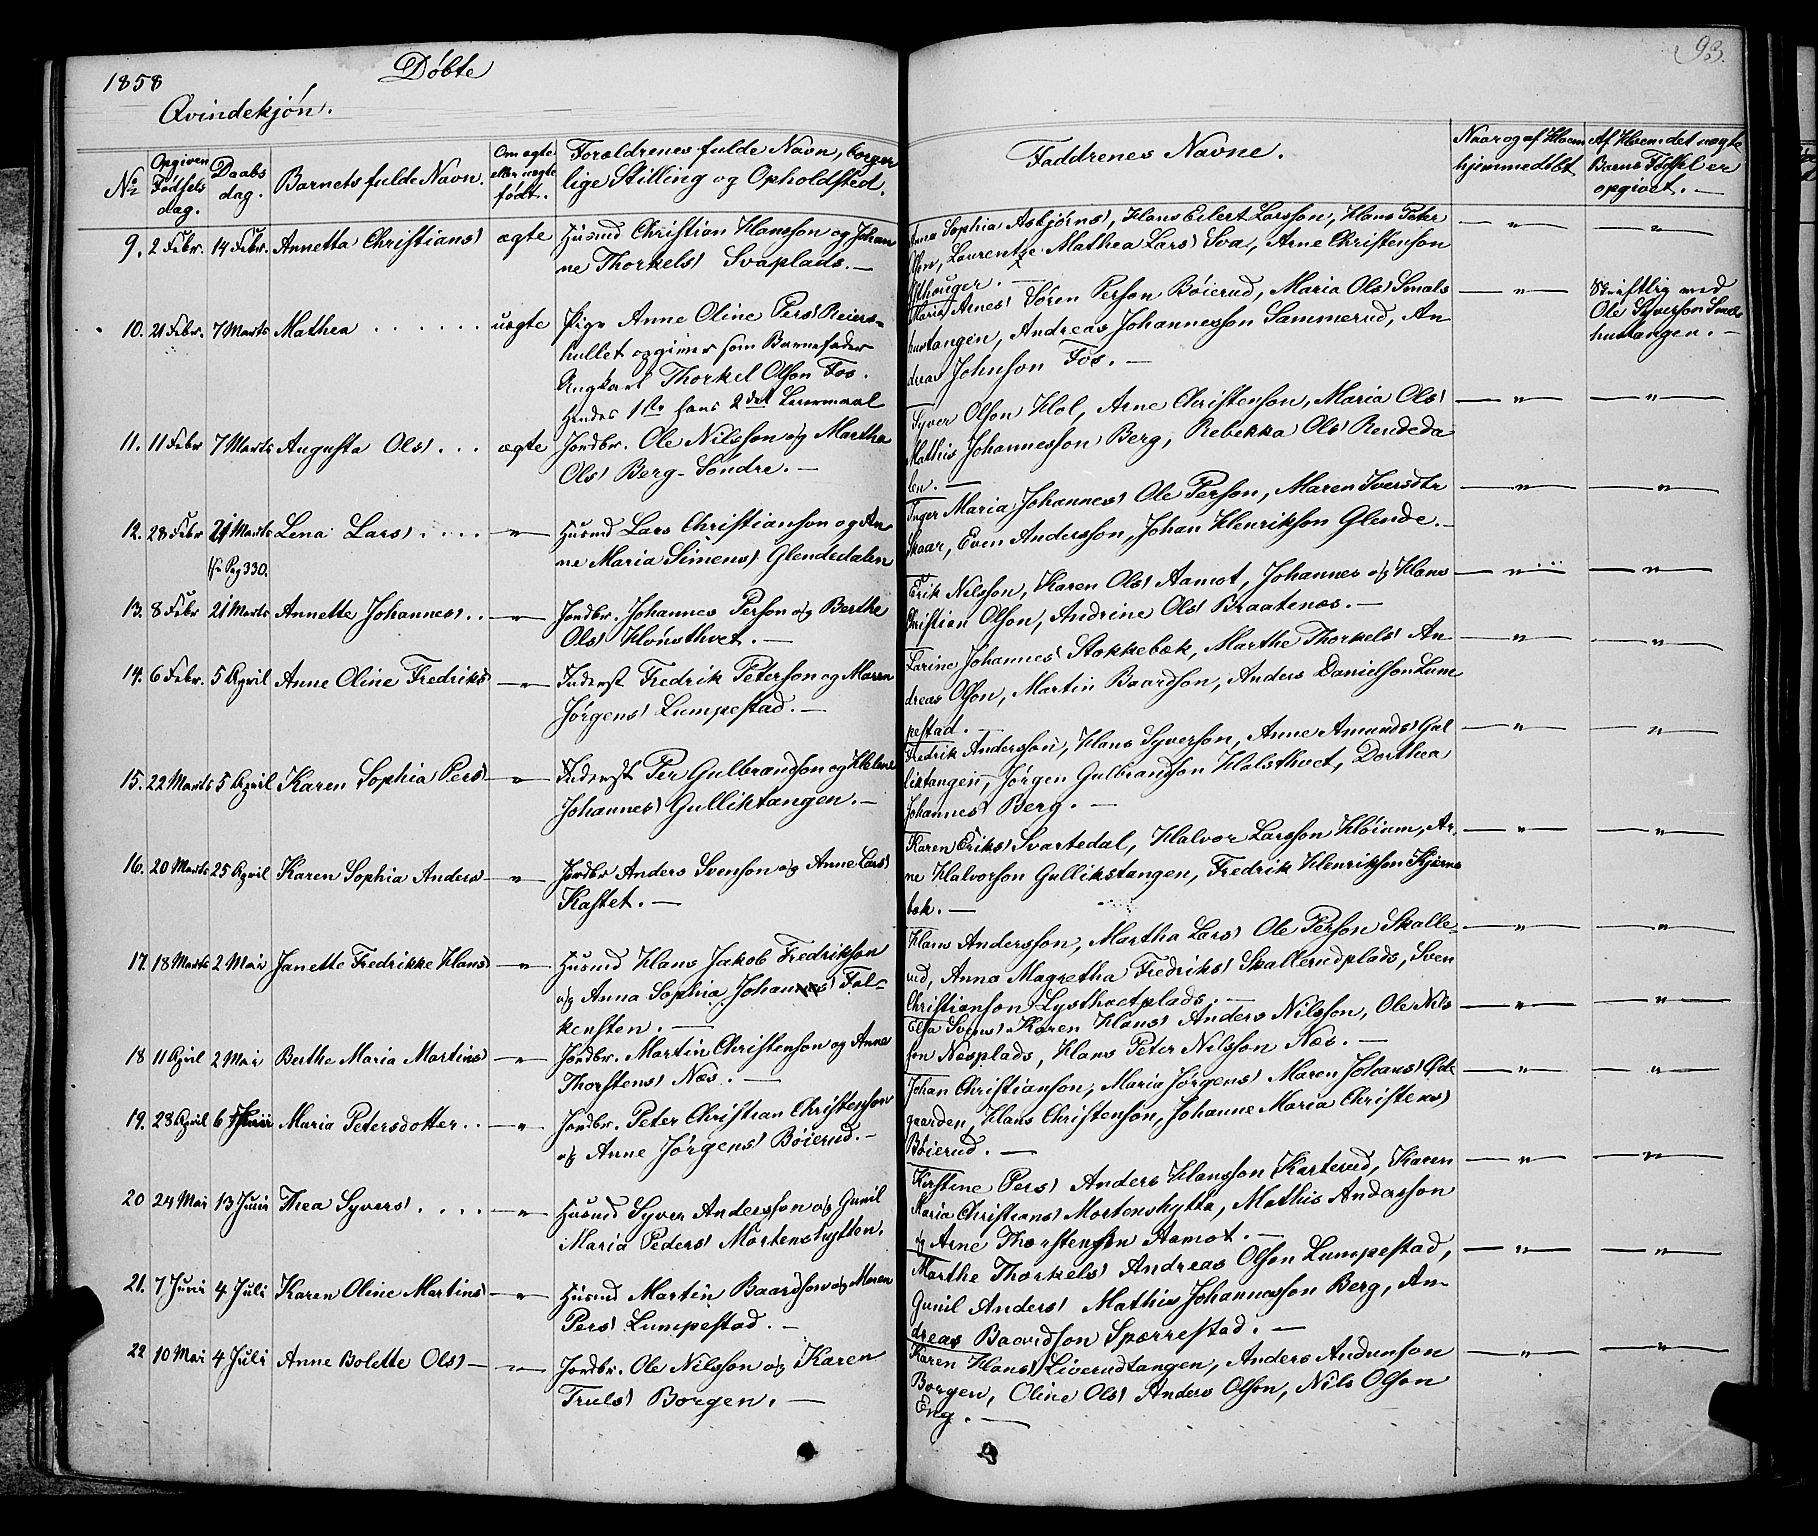 1858 Döbte
Qvindekjön.
93.
No Opgiven Födsels dag. Daabs dag. Barnets fulde Navn. Om ægte eller uægte födt. Forældrenes fulde Navn, borger lige Stilling og Opholdsted.
Faddrenes Navne. Naar og af Hvem hjemmedöbt Af Hvem det uægte Barns Födsel er opgivet. —
9. 2 Febr. 14 Febr. Annetta Christians) ægte Husmd Christian Hansson og Johan
ne Thorkels) Svaplads. —
Anna Sophia Asbjörns), Hans Eilert Larsson, Hans Peter — " — — " —
Olson, Laurentze Mathea Lars) Sva, Arne Christenson
Östhouger. —
10. 21 Febr. 7 Marts Mathea . . . . . . uægte Pige Anne Oline Pers) Reiers-
hullet opgiver som Barnefader
Ungkarl Thorkel Olson Fos.
Hendes 1ste hans 2det Leiermaal
Maria Arnes) Sören Person Böierud, Maria Ols) Smals — " — Skriftlig ved
hustangen, Andreas Johannesson Sammerud, An Ole Syverson Smals
dreas Johnson Fos. — hustangen. —
11. 11 Febr 7 Marts Augusta Ols) . . . ægte Jordbr. Ole Nilsson og Martha
Ols) Berg-Söndre. —
Syver Olson Hol, Arne Christenson, Maria Ols) — " — — " —
Mathis Johannesson Berg, Rebekka Ols) Rendeda
len. —
12. 28 Febr 21 Marts Lena Lars) . . . . — " — Husmd Lars Christianson og An
Pag 330. ne Maria Simens) Glendedalen
Inger Maria Johannes) Ole Person, Maren Iversdtr — " — — " —
Skaar, Even Andersson, Johan Henrikson Glende. —
13. 8 Febr 21 Marts Annette Johannes) . . — " — Jordbr. Johannes Person og Berthe
Ols) Hvusthvet. —
Erik Nilsson, Karen Ols) Aamot, Johannes og Hans — " — — " —
Christian Olson, Andrine Ols) Braatenæs. —
14. 6 Febr. 5 April Anne Oline Fredriks) — " — Inderst Fredrik Peterson og Maren
Jörgens) Lumpestad. —
Karine Johannes) Stokkebæk, Marthe Thorkels) An — " — — " —
dreas Olson, Martin Baardson, Anders Danielson Lum
pestad. —
15. 22 Marts 5 April Karen Sophia Pers) — " — Inderst Per Gulbrandson og Helene
Johannes) Gulliktangen. —
Fredrik Andersson, Hans Syverson, Anne Amunds) Gul — " — — " —
liktangen, Jörgen Gulbrandson Halsthvet, Dorthea
Johannes) Berg. —
16. 20 Marts 25 April Karen Sophia Anders) — " — Jordbr Anders Svenson og Anne Lars)
Kastet. —
Karen Eriks) Svartedal, Halvor Larsson Höium, Ar — " — — " —
ne Halvorson Gullikstangen, Fredrik Henrikson Kjerne
bæk. —
17. 18 Marts 2 Mai Janette Fredrikke Hans) — " — Husmd Hans Jakob Fredrikson
og Anna Sophia Johannes) Fal-
kensten. —
Hans Andersson, Martha Lars) Ole Person Skalle- — " — — " —
rud, Anna Magretha Fredriks) Skallerudplads, Sven
Christianson Lysthvetplads. —
18 11 April 2 Mai Berthe Maria Martins) — " — Jordbr. Martin Christenson og Anne
Thorstens) Næs. —
Elsa Svens) Karen Hans) Anders Nilsson, Ole Nils — " — — " —
son Næsplads, Hans Peter Nilsson Næs. —
19. 28 April 6 Juni Maria Petersdotter . . — " — Jordbr. Peter Christian Christenson
og Anne Jörgens) Böierud. —
Johan Christianson, Maria Jörgens) Maren Johans) — " — — " —
gaarden, Hans Christenson, Johanne Maria Christens)
Böierud. —
20 24 Mai 13 Juni Thea Syvers) . . . . — " — Husmd Syver Andersson og Gunil
Maria Peders) Mortenshytten.
Kirstine Pers) Anders Hansson Karterud, Karen — " — — " —
Maria Christians) Mortenshytta, Mathis Andersson
og Arne Thorstenson Aamot. —
21. 7 Juni 4 Juli Karen Oline Martins) — " — Husmd Martin Baardson og Maren
Pers) Lumpestad. —
Marthe Thorkels) Andreas Olson Lumpestad, — " — — " —
Gunil Anders) Mathis Johannesson Berg, An-
dreas Baardson Sparrestad. —
22 10 Mai 4 Juli Anne Bolette Ols) — — " — Jordbr. Ole Nilsson og Karen
Truls) Borgen. —
Karen Hans) Liverudtangen, Anders Andunson — " — — " —
Borgen, Oline Ols) Anders Olson, Nils Olson
Eng. —